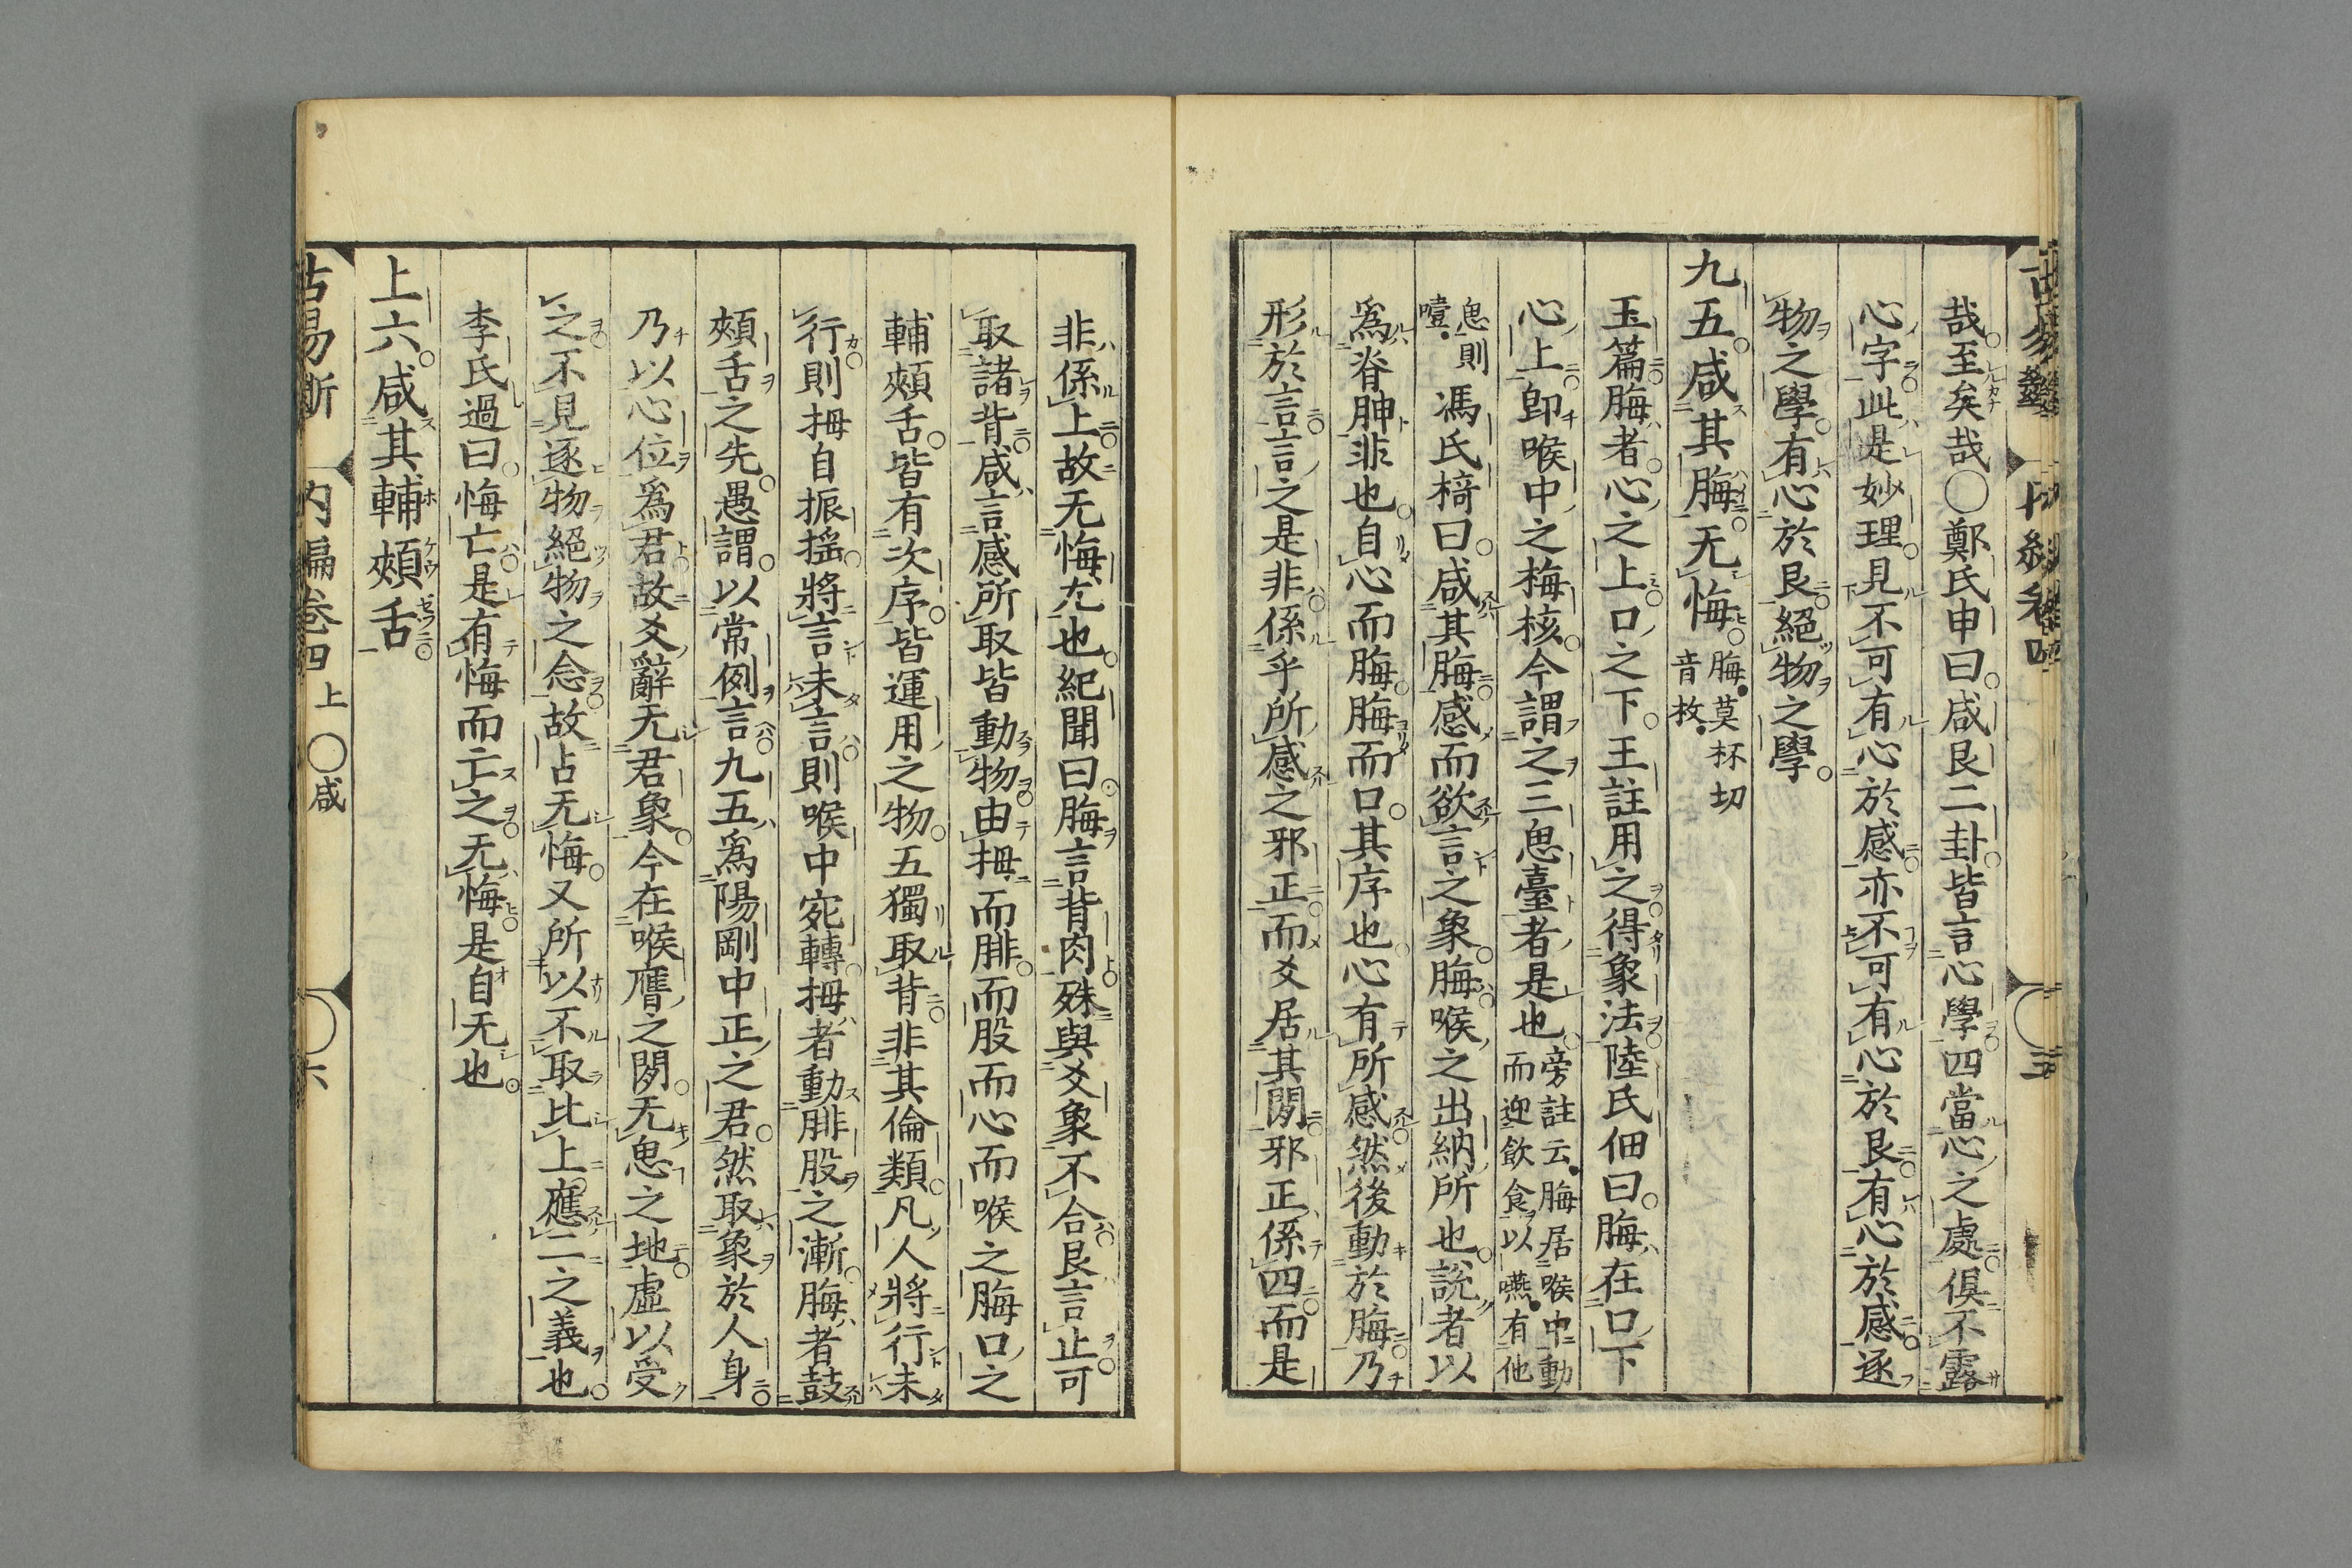 哉至矣哉○鄭氏申曰咸艮二卦皆言心學四當心之處俱不露
心字此是妙理見不可有心於感亦不可有心於艮有心於感逐
物之學有心於艮絕物之學
九五咸其脢无悔脢莫杯切音枚
玉篇脢者心之上口之下王註用之得象法陸氏佃曰脢在口下
心上卽喉中之梅核今謂之三思臺者是也旁註云脢居喉中動而迎飲食以嚥有他
思則噎馮氏椅曰咸其脢感而欲言之象脢喉之出納所也說者以
爲脊胂非也自心而脢脢而口其序也心有所感然後動於脢乃
形於言言之是非係乎所感之邪正而爻居其閒邪正係四而是
非係上故无悔尤也紀聞曰脢言背肉殊與爻象不合艮言止可
取諸背咸言感所取皆動物由拇而腓而股而心而喉之脢口之
輔頰舌皆有次序皆運用之物五獨取背非其倫類凡人將行未
行則拇自振搖將言未言則喉中宛轉拇者動腓股之漸脢者鼓
頰舌之先愚謂以常例言九五爲陽剛中正之君然取象於人身
乃以心位爲君故爻辭无君象今在喉膺之閒无思之地虛以受
之不見逐物絕物之念故占无悔又所以不取比上應二之義也
李氏過曰悔亡是有悔而亡之无悔是自无也
上六咸其輔頰舌
古易斷 內編卷四上 ○咸 六